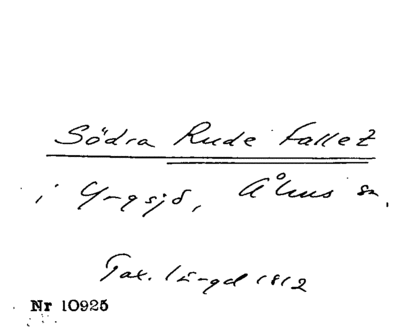 Södra Rude Fallet
i Yngsjö, Åhus sn.
Tax. längd 1812
Nr 10925